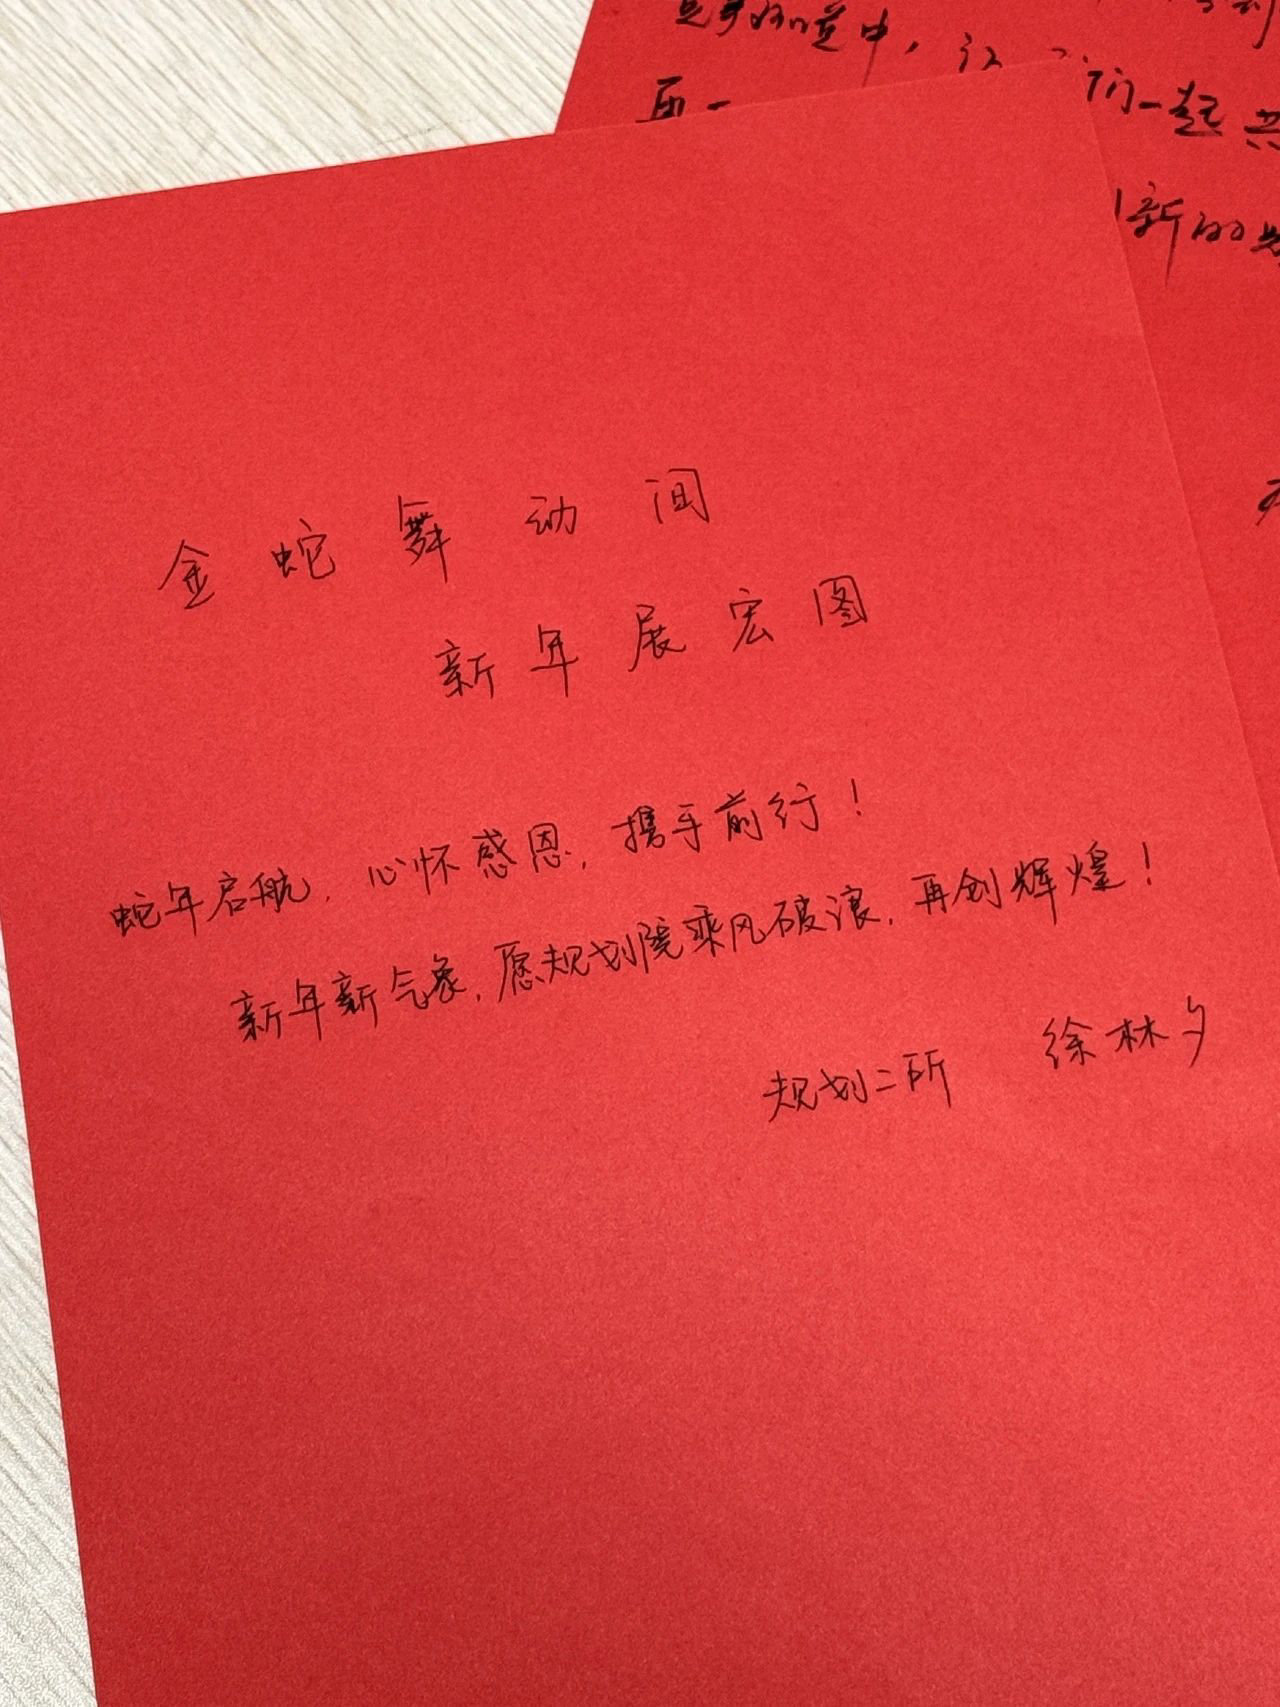 中，
再一 们一起 共
新的
金蛇舞动间
新年展宏图
蛇年启航，心怀感恩，携手前行！
新年新气象，愿规划院乘风破浪，再创辉煌！
规划二所 徐林夕